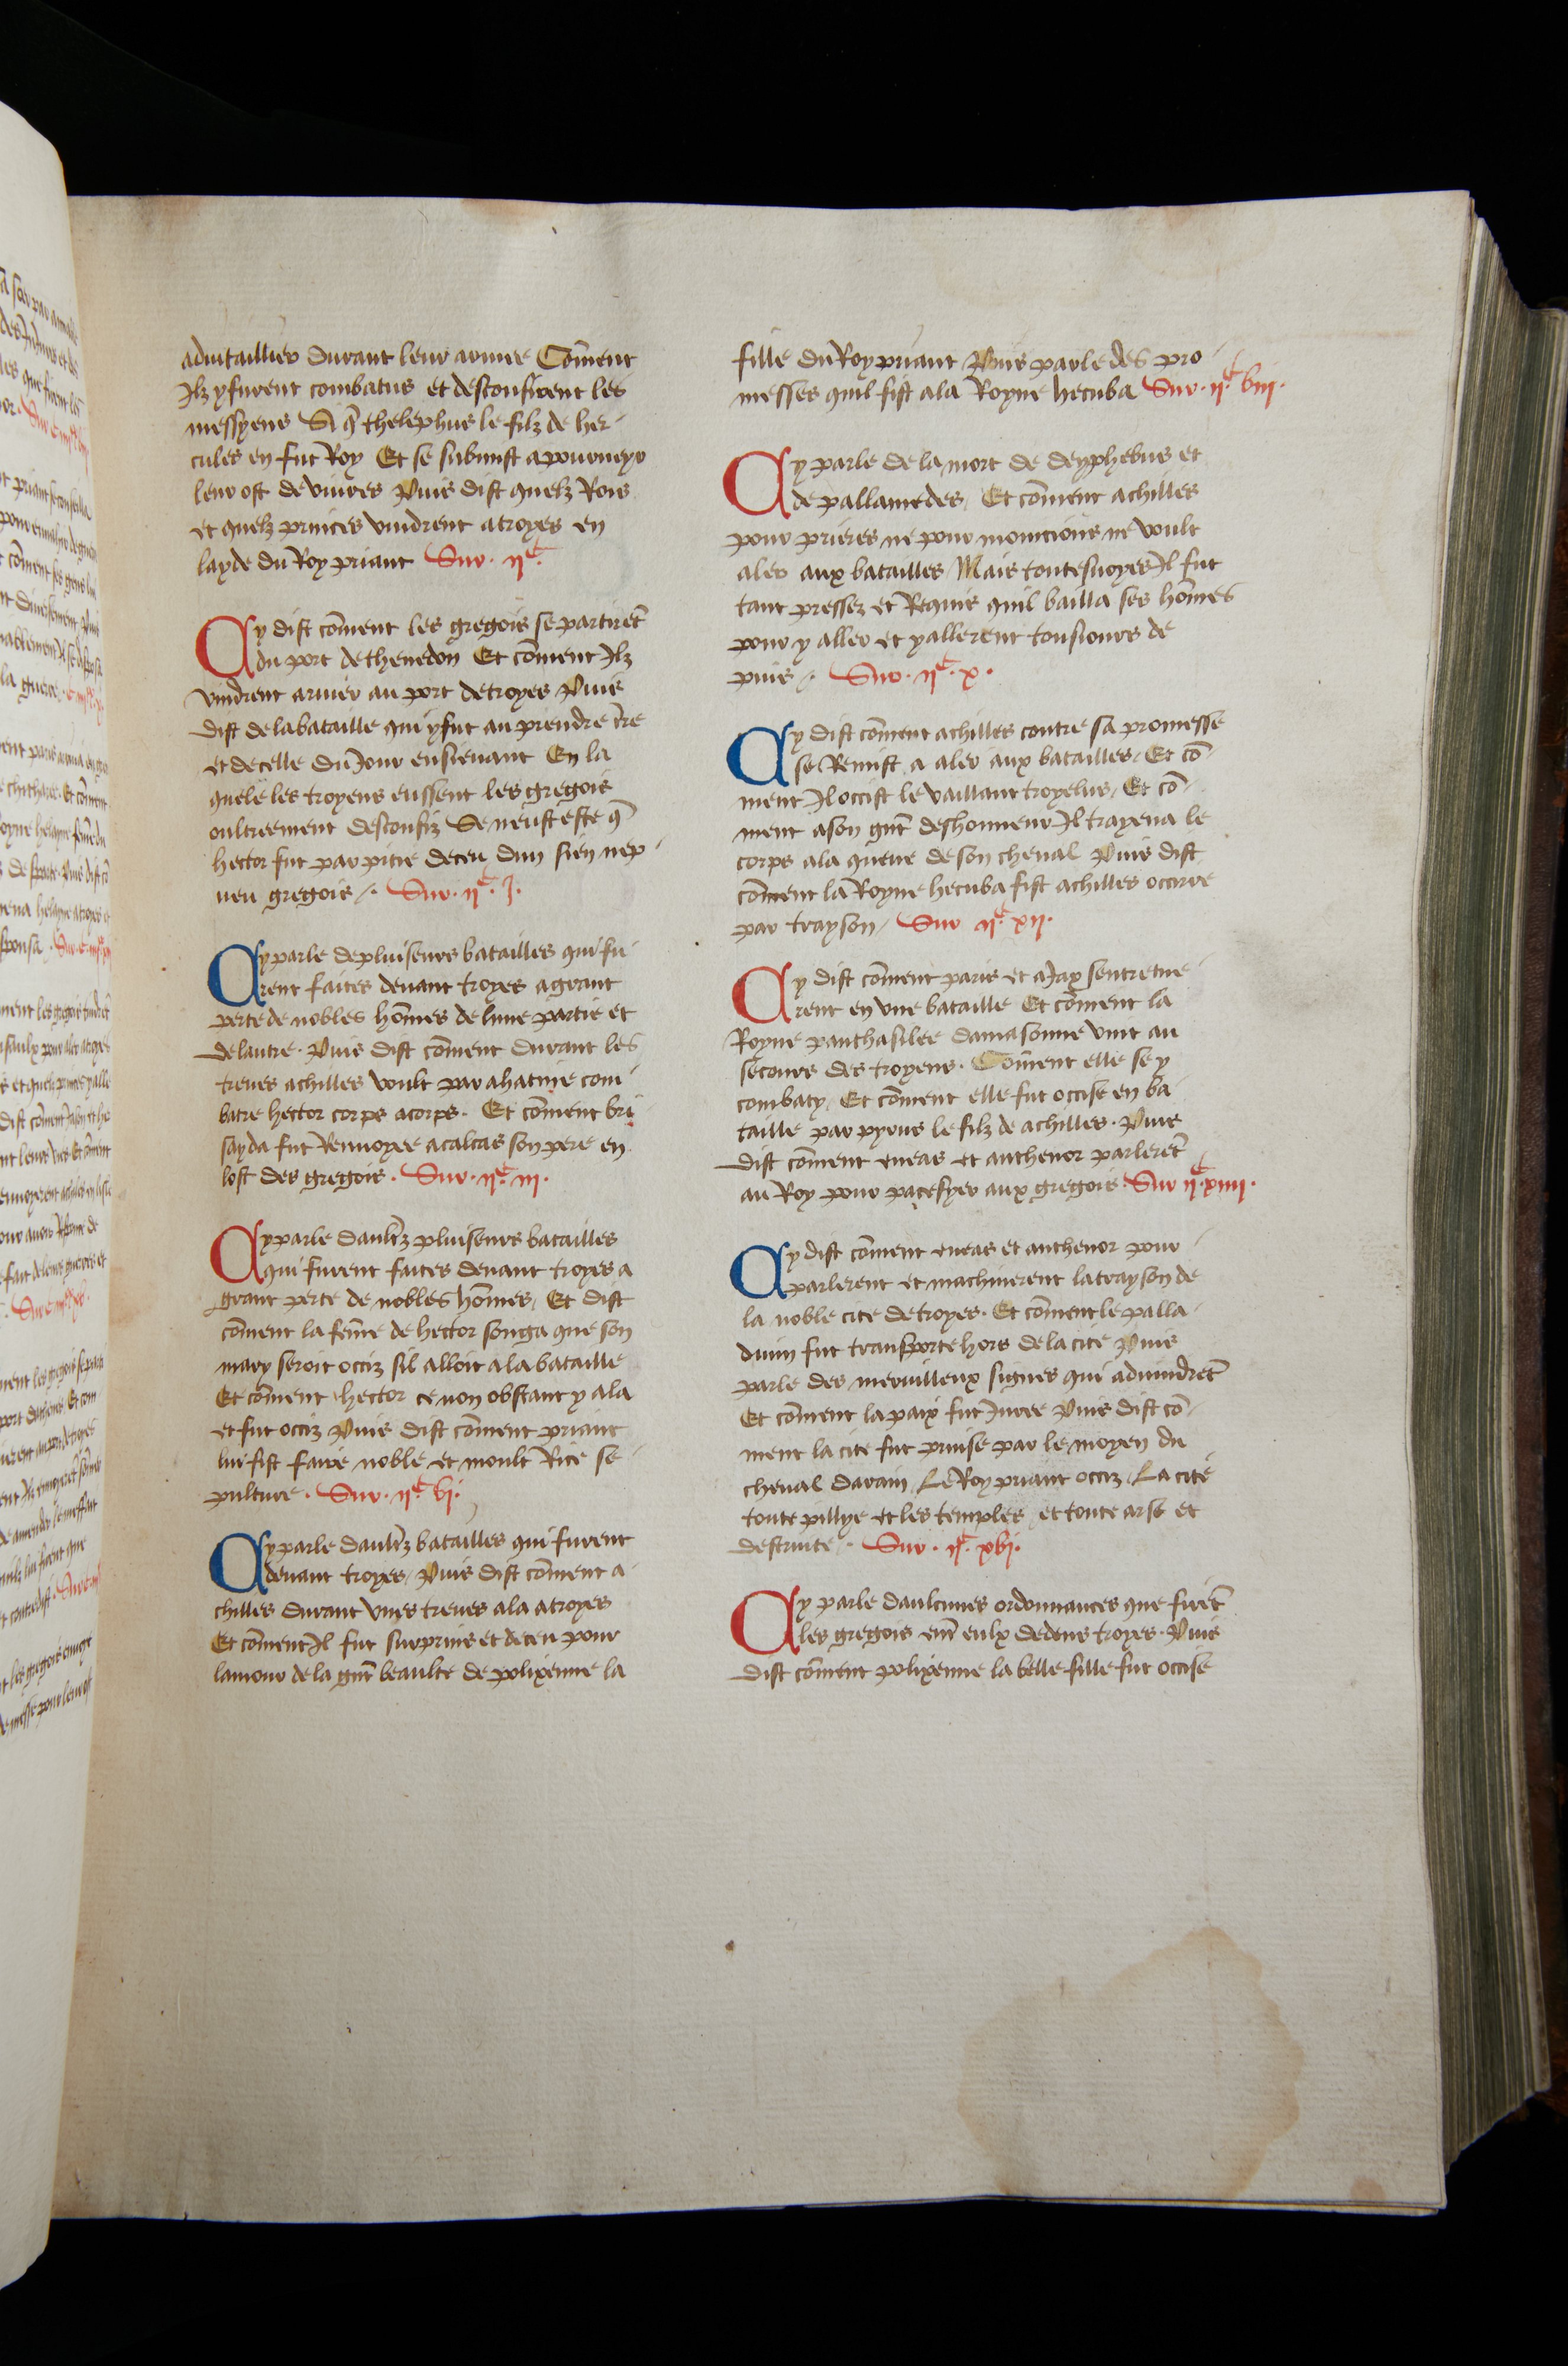 aduitaillier durant leur armee Coment
Ilz y furent combatus et desconfirent les
messyens Si q̄ thelephus le filz de her
cules en fut Roy Et se submist a pourueyr
leur ost de viures Puis dist quelz Rois
et quelz princes vindrent a troyes en
layde du Roy priant Sur · ijᶜ·
Cy dist cōment les gregois se partirēt
du port de thenedon Et cōment Ilz
vindrent arriuer au port de troyes Puis
dist de la bataille qui y fut au prendre t̄re
et de celle du Jour ensieuant En la
quele les troyens eussent les gregois
oultreement desconfiz Se neust este q̄
hector fut par pitie deceu dun sien nep
ueu gregois / · Sur · ijᶜ · J ·
Cy parle de pluiseurs batailles qui fu
rent faites deuant troyes a grant
perte de nobles hōmes de lune partie et
de lautre · Puis dist cōment durant les
treues achilles voult par ahatine com
batre hector corps a corps · Et cōment bri
sayda fut Renuoyee a calcas son pere en
lost des gregois · Sur · ijᶜ · iij ·
Cy parle daultr̄z pluiseurs batailles
qui furent faites deuant troyes a
grant perte de nobles hōmes / Et dist
cōment la fēme de hector songa que son
mary seroit occiz sil alloit a la bataille
Et cōment hector ce non obstant y ala
et fut occiz Puis dist cōment priant
lui fist faire noble et moult Rice se
pulture · Sur · ijᶜ · vj ·
Cy parle daultr̄z batailles qui furent
deuant troyes / Puis dist cōment a
chilles durant vnes treues ala a troyes
Et cōment Il fut surprins et deceu pour
lamour de la gn̄t beaulte de polixenne la
fille du Roy priant Puis parle des pro
messes quil fist a la Royne hecuba Sur · ijᶜ · viij ·
Cy parle de la mort de deyphebus et
de pallamedes / Et cōment achilles
pour prieres ne pour monicions ne voult
aler aux batailles / Mais toutesuoyes Il fut
tant pressez et Requis quil bailla ses hōmes
pour y aller et y allerent tousiours de
puis / · Sur · ijᶜ · x ·
Cy dist cōment achilles contre sa promesse
se Remist a aler aux batailles / Et cō
ment Il occist le vaillant troyelus / Et cō
ment a son gn̄t deshonneur Il trayena le
corps a la queue de son cheual Puis dist
cōment la Royne hecuba fist achilles occirre
par trayson / Sur ijᶜ · xij ·
Cy dist cōment paris et aJax sentretue
rent en vne bataille Et cōment la
Royne panthasilee damasonne vint au
secours des troyens · Coment elle se y
combaty / Et cōment elle fut occise en ba
taille par pyrus le filz de achilles · Puis
dist cōment eneas et anthenor parlerēt
au Roy pour pacefyer aux gregois Sur ijᶜ · xiiij ·
Cy dist cōment eneas et anthenor pour
parlerent et machinerent la trayson de
la noble cite de troyes · Et cōment le palla
dium fut transporte hors de la cite Puis
parle des merueilleux signes qui aduindrēt
Et cōment la paix fut Juree Puis dist cō
ment la cite fut prinse par le moyen du
cheual darain / Le Roy priant occiz / La cite
toute pillye et les temples / et toute arse et
destruite / · Sur · ijᶜ · xvj ·
Cy parle daulcunes ordonnances que firēt
les gregois ent̄ eulx dedens troyes · Puis
dist cōment polixenne la belle fille fut occise